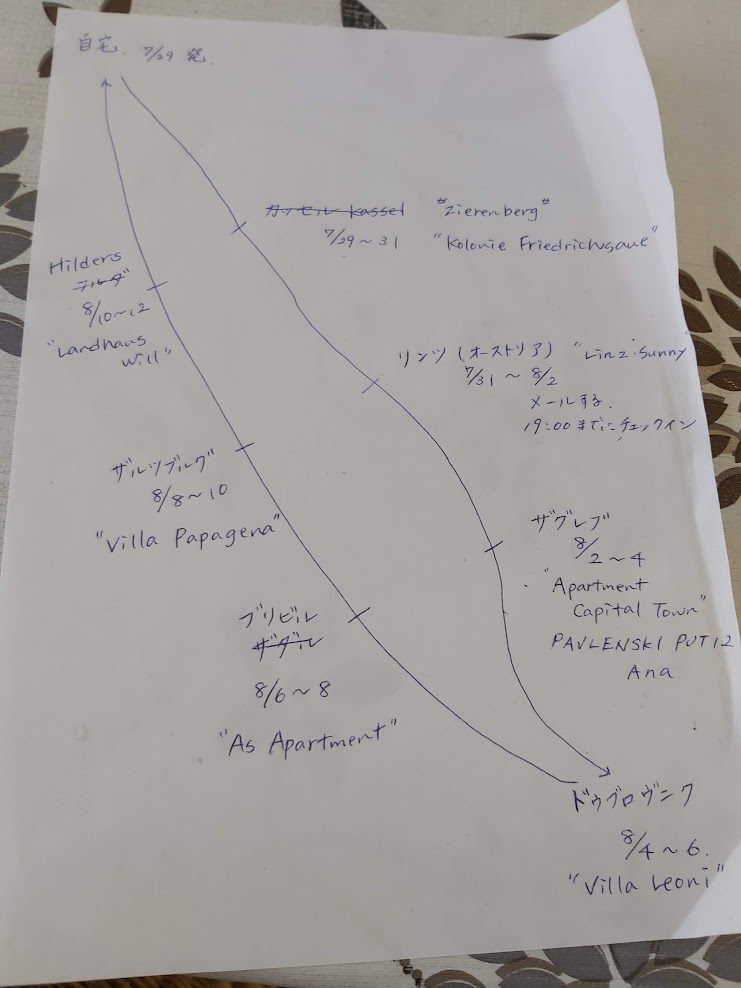 自宅. 7/29 発.
カッセル Kassel "Zierenberg"
7/29~31 "Kolonie Friedrichsaue"
リンツ (オーストリア) "Linz Sunny"
7/31 ~ 8/2
メールする.
19:00までにチェックイン
ザグレブ
8/2~4
"Apartment
Capital Town"
PAVLENSKI PUT 12
Ana
ドゥブロヴニク
8/4~6.
"Villa Leoni"
プリビル
ザダル
8/6~8
"As Apartment"
ザルツブルグ
8/8~10
"Villa Papagena"
Hilders
フルダ
8/10~12
"Landhaus
Will"